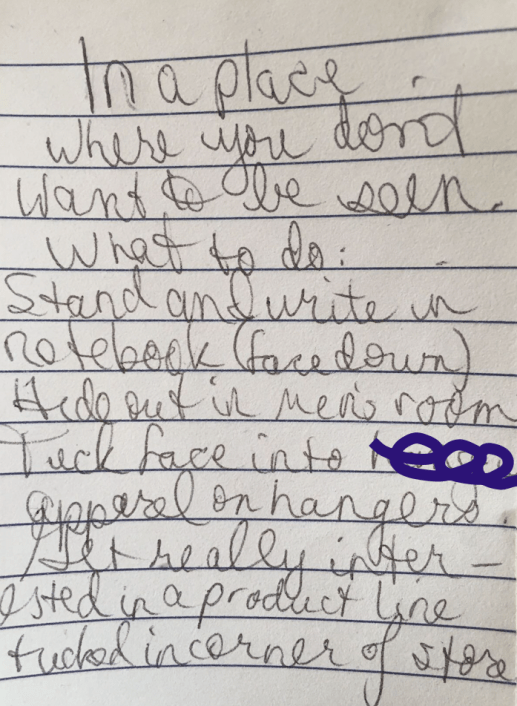 In a place
where you don't
want to be seen.
What to do:
Stand and write in
notebook (face down)
Hide out in men's room
Tuck face into
apparel on hangers.
Get really inter-
ested in a product line
tucked in corner of store